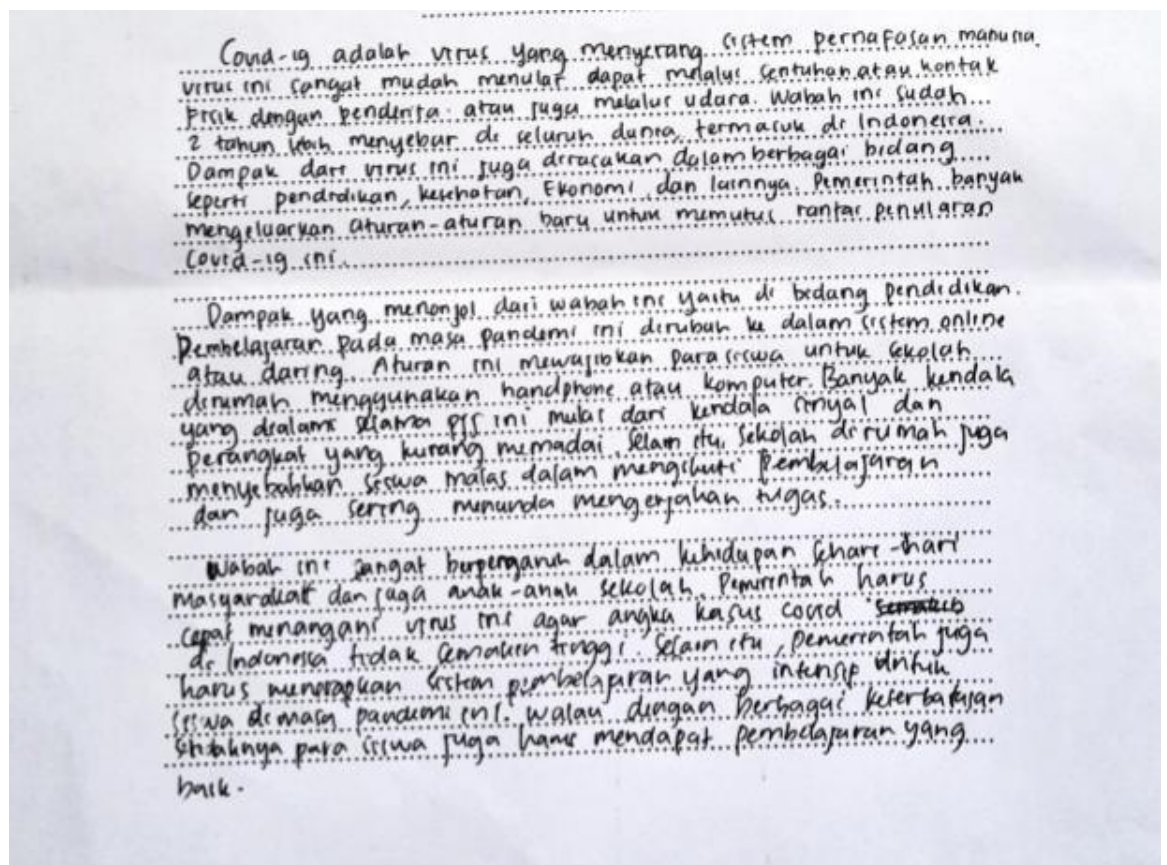 Covid-19 adalah virus yang menyerang sistem pernafasan manusia.
virus ini sangat mudah menular dapat melalui sentuhan atau kontak
fisik dengan penderita atau juga melalui udara. Wabah ini sudah
2 tahun lebih menyebar di seluruh dunia, termasuk di Indonesia.
Dampak dari virus ini juga dirasakan dalam berbagai bidang
seperti pendidikan, kesehatan, Ekonomi, dan lainnya. Pemerintah banyak
mengeluarkan aturan-aturan baru untuk memutus rantai penularan
Covid-19 ini.
Dampak yang menonjol dari wabah ini yaitu di bidang pendidikan.
Pembelajaran pada masa pandemi ini dirubah ke dalam sistem online
atau daring. Aturan ini mewajibkan para siswa untuk sekolah
dirumah menggunakan handphone atau komputer. Banyak kendala
yang dialami selama PJJ ini mulai dari kendala sinyal dan
perangkat yang kurang memadai. Selain itu, sekolah dirumah juga
menyebabkan siswa malas dalam mengikuti pembelajaran
dan juga sering menunda mengerjakan tugas.
Wabah ini sangat berpengaruh dalam kehidupan sehari-hari
masyarakat dan juga anak-anak sekolah. Pemerintah harus
cepat menangani virus ini agar angka kasus covid
di Indonesia tidak semakin tinggi. Selain itu, pemerintah juga
harus menerapkan sistem pembelajaran yang intensip untuk
siswa di masa pandemi ini. walau dengan berbagai keterbatasan
para siswa juga harus mendapat pembelajaran yang
baik.